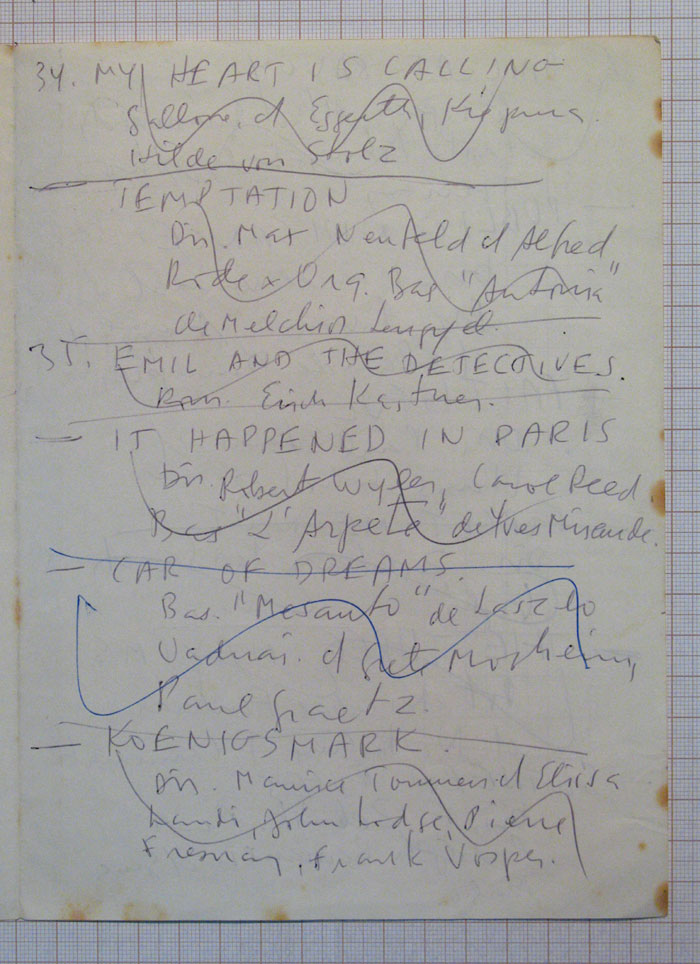 34. MY HEART IS CALLING
d Eggerth, Kiepura.
Hilde von Stolz
TEMPTATION
Dir. Max Neufeld d Alfred
Rode x Orq. Bas "Antonia"
de Melchior Lengyel.
35. EMIL AND THE DETECTIVES.
Rom. Erich Kastner.
— IT HAPPENED IN PARIS
Dir. Robert Wyler, Carol Reed
Bas "L'Arpete" de Yves Mirande.
— CAR OF DREAMS.
Bas. "Mesauto" de Laszlo
Vadnai. d Grete Mosheim,
Paul Graetz.
— KOENIGSMARK.
Dir. Maurice Tourneur d Elissa
Landi, John Lodge, Pierre
Fresnay, Frank Vosper.